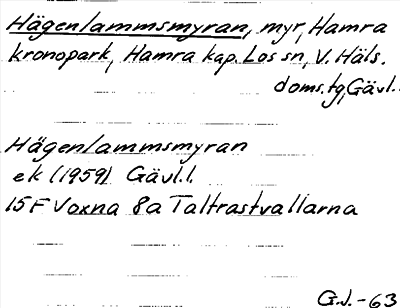 Hägenlammsmyran, myr, Hamra
kronopark, Hamra kap. Los sn, V. Häls.
doms.tg, Gävl.l.
Hägenlammsmyran
ek (1959) Gävl.l.
15F Voxna 8a Taltrastvallarna
G.J.-63